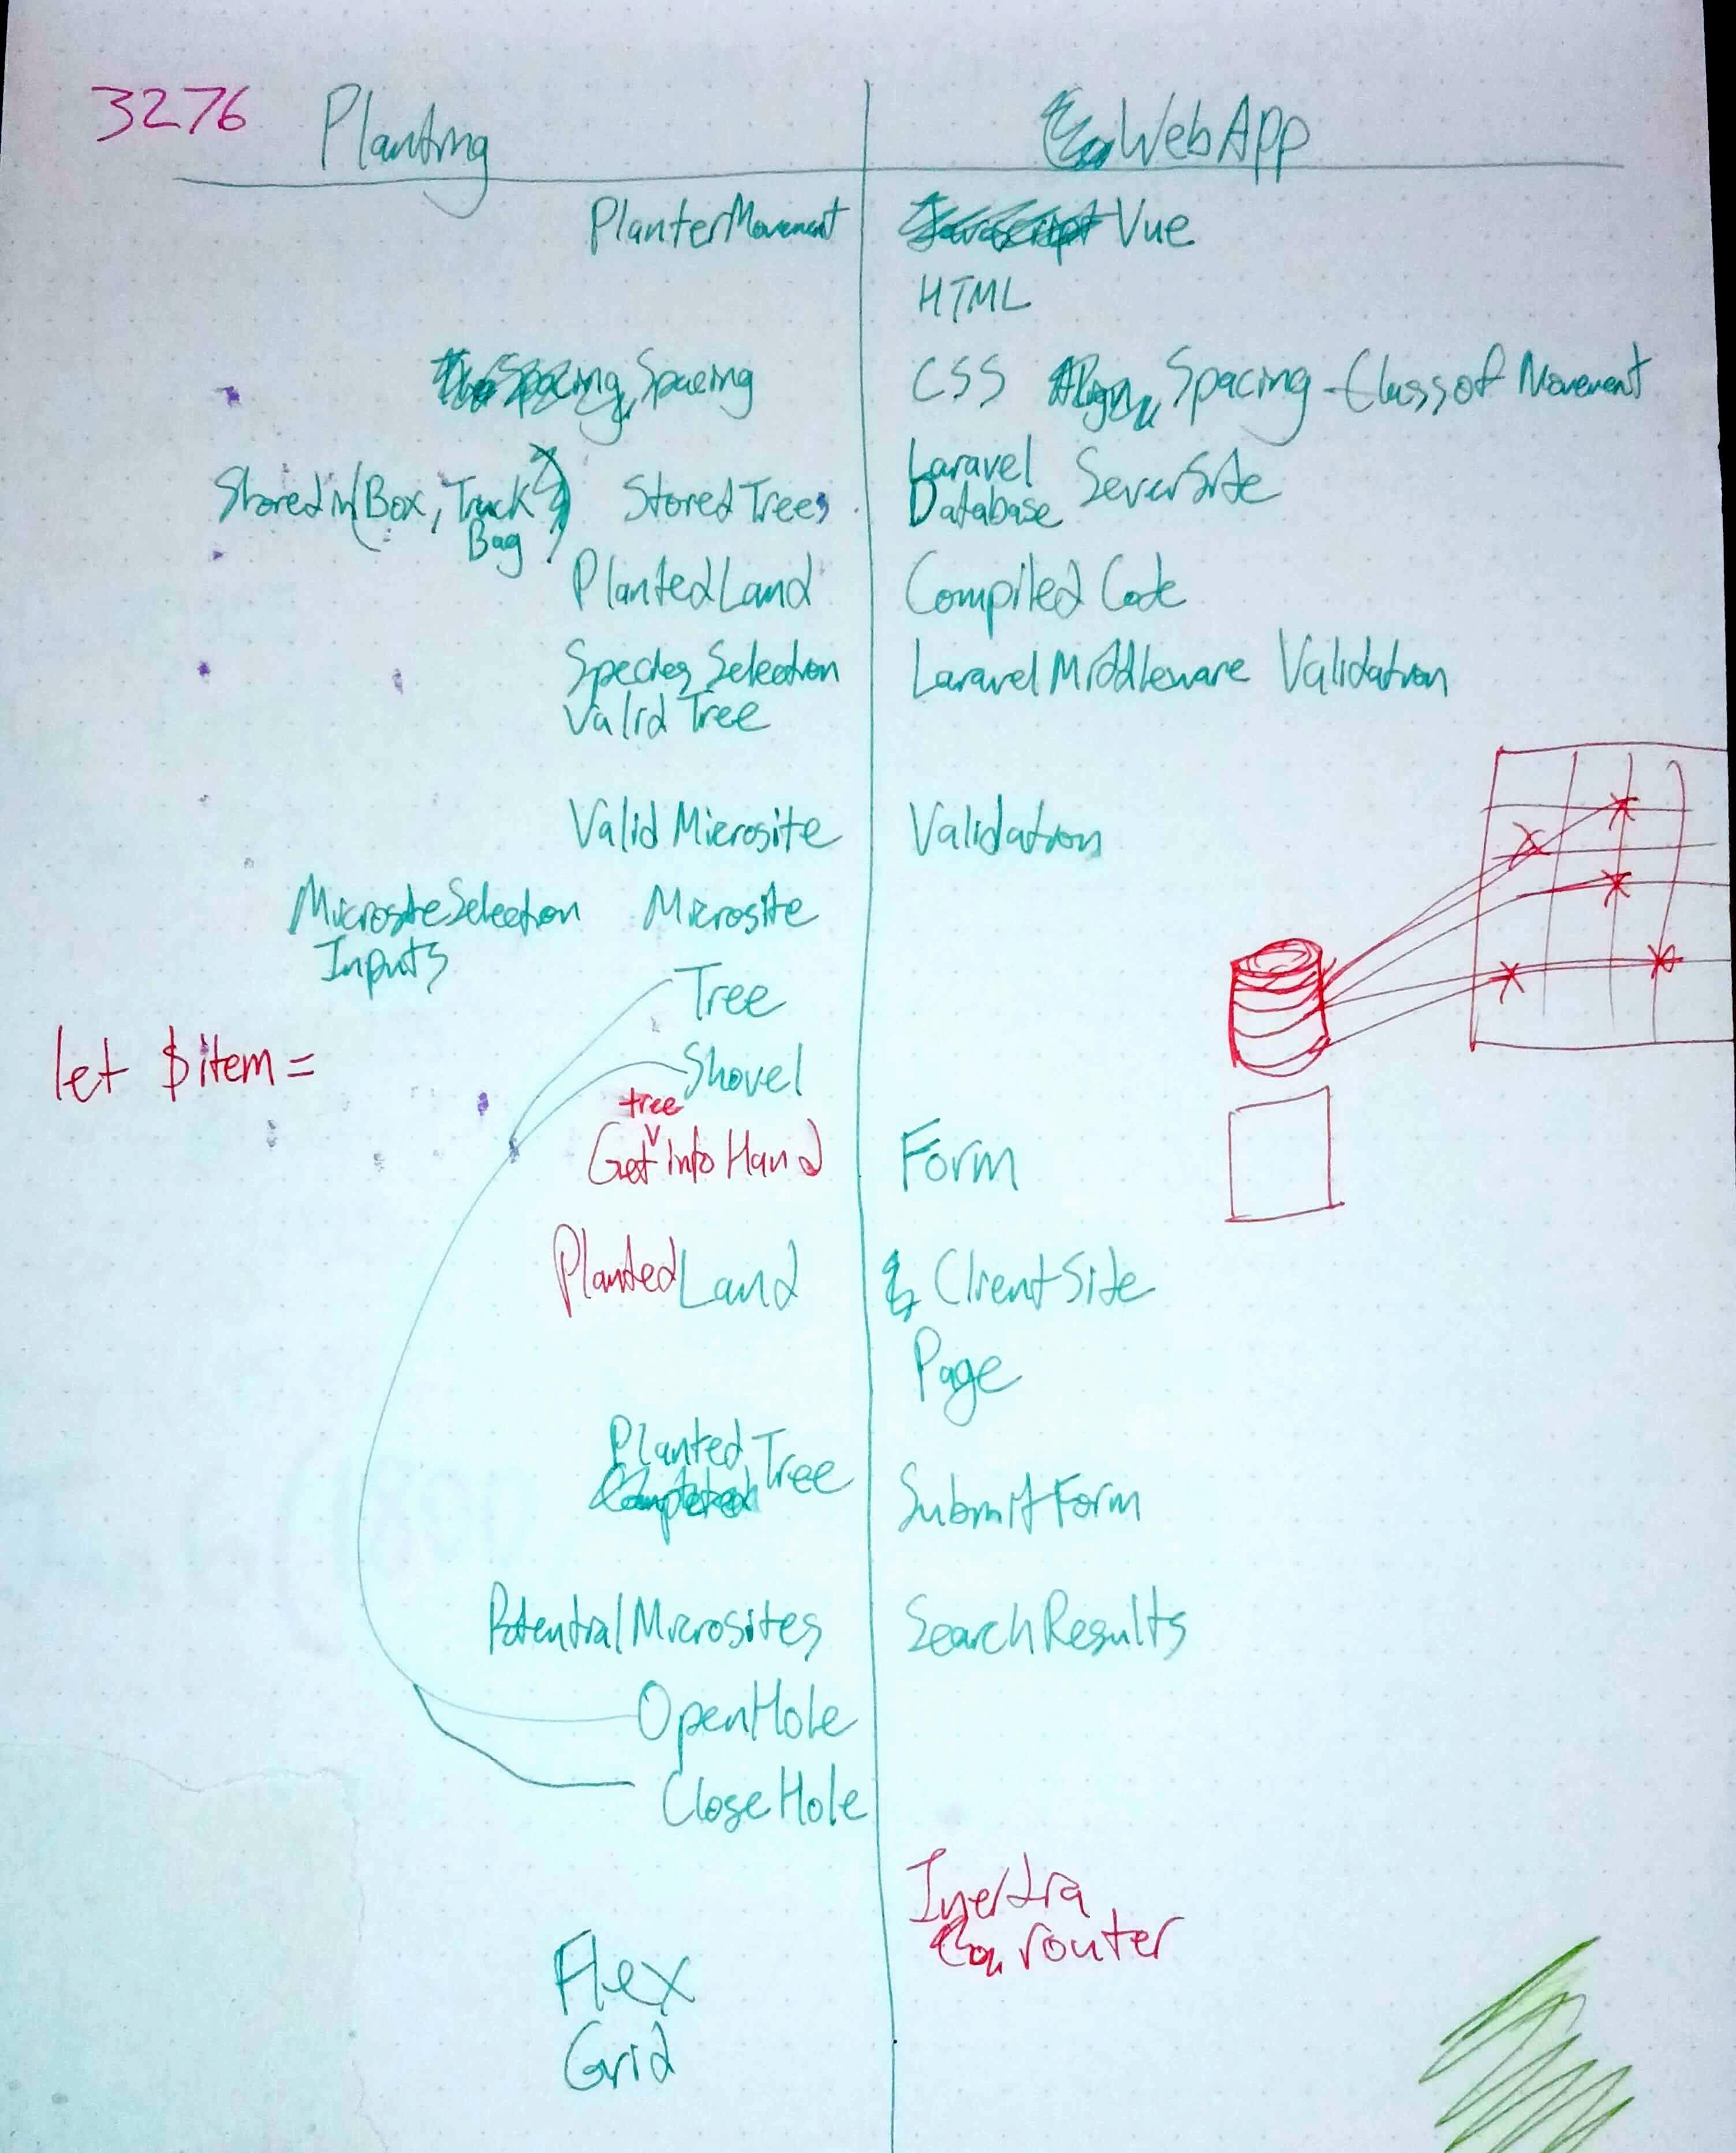 3276 Planting WebApp
PlanterMovement Javascript Vue
HTML
Spacing, Spacing CSS Align Spacing - Class of Movement
Stored in (Box, Truck Bag) Stored Trees Laravel Database SeverSite
Planted Land Compiled Code
Species Selection Laravel Middleware Validation
Valid Tree
Valid Microsite Validation
Microsite Selection Microsite
Inputs
Tree
let $item = Shovel
tree
Get into Hand Form
Planted Land Client Site
Page
Planted Tree
Completed Submit Form
Potential Microsites Search Results
Open Hole
Close Hole
Inertia
router
Flex
Grid